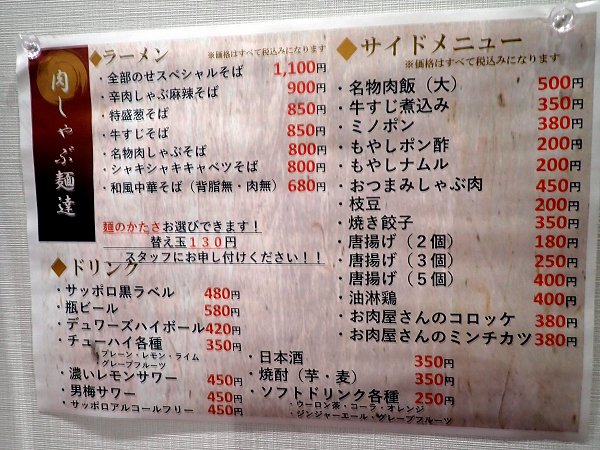 肉しゃぶ麺達
◆ラーメン ※価格はすべて税込みになります
・全部のせスペシャルそば 1,100円
・辛肉しゃぶ麻辣そば 900円
・特盛葱そば 850円
・牛すじそば 850円
・名物肉しゃぶそば 800円
・シャキシャキキャベツそば 800円
・和風中華そば（背脂無・肉無） 680円
麺のかたさお選びできます！
替え玉１３０円
スタッフにお申し付けください！！
◆ドリンク
・サッポロ黒ラベル 480円
・瓶ビール 580円
・デュワーズハイボール 420円
・チューハイ各種 350円
・プレーン・レモン・ライム
・グレープフルーツ
・濃いレモンサワー 450円
・男梅サワー 450円
・サッポロアルコールフリー 450円
・日本酒 350円
・焼酎（芋・麦） 350円
・ソフトドリンク各種 250円
・ウーロン茶・コーラ・オレンジ
・ジンジャーエール・グレープフルーツ
◆サイドメニュー
※価格はすべて税込みになります
・名物肉飯（大） 500円
・牛すじ煮込み 350円
・ミノポン 380円
・もやしポン酢 200円
・もやしナムル 200円
・おつまみしゃぶ肉 450円
・枝豆 200円
・焼き餃子 350円
・唐揚げ（２個） 180円
・唐揚げ（３個） 250円
・唐揚げ（５個） 400円
・油淋鶏 400円
・お肉屋さんのコロッケ 380円
・お肉屋さんのミンチカツ 380円